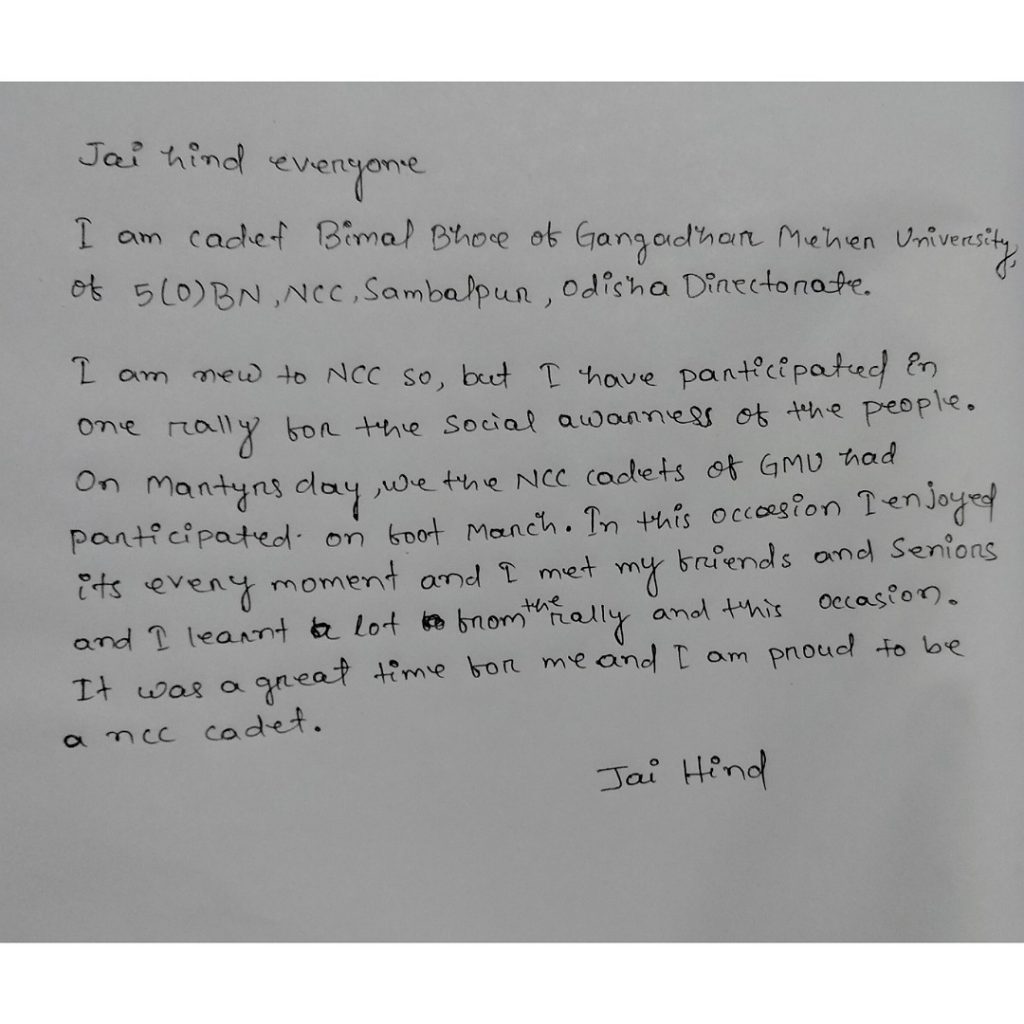 Jai hind everyone
I am cadet Bimal Bhoe of Gangadhar Meher University,
of 5(O)BN, NCC, Sambalpur, Odisha Directorate.
I am new to NCC so, but I have participated in
one rally for the social awarness of the people.
On Martyrs day, we the NCC cadets of GMU had
participated. on foot March. In this occasion I enjoyed
its every moment and I met my friends and Seniors
and I learnt a lot from the rally and this occasion.
It was a great time for me and I am proud to be
a ncc cadet.
Jai Hind